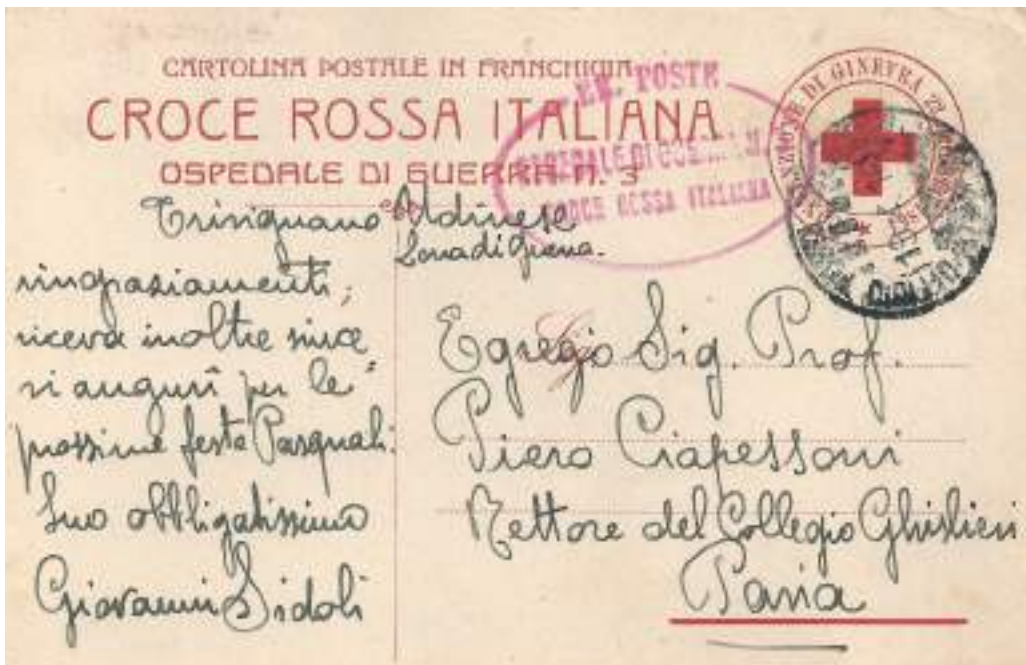 CARTOLINA POSTALE IN FRANCHIGIA
CROCE ROSSA ITALIANA
OSPEDALE DI GUERRA N. 3
POSTE
CROCE ROSSA ITALIANA
DI GINEVRA
Trivignano Udinese
Zona di guerra.
ringraziamenti,
riceva inoltre since
ri auguri per le
prossime feste Pasquali.
Suo obbligatissimo
Giovanni Sidoli
Egregio Sig. Prof.
Piero Ciapessoni
Rettore del Collegio Ghislieri
Pavia